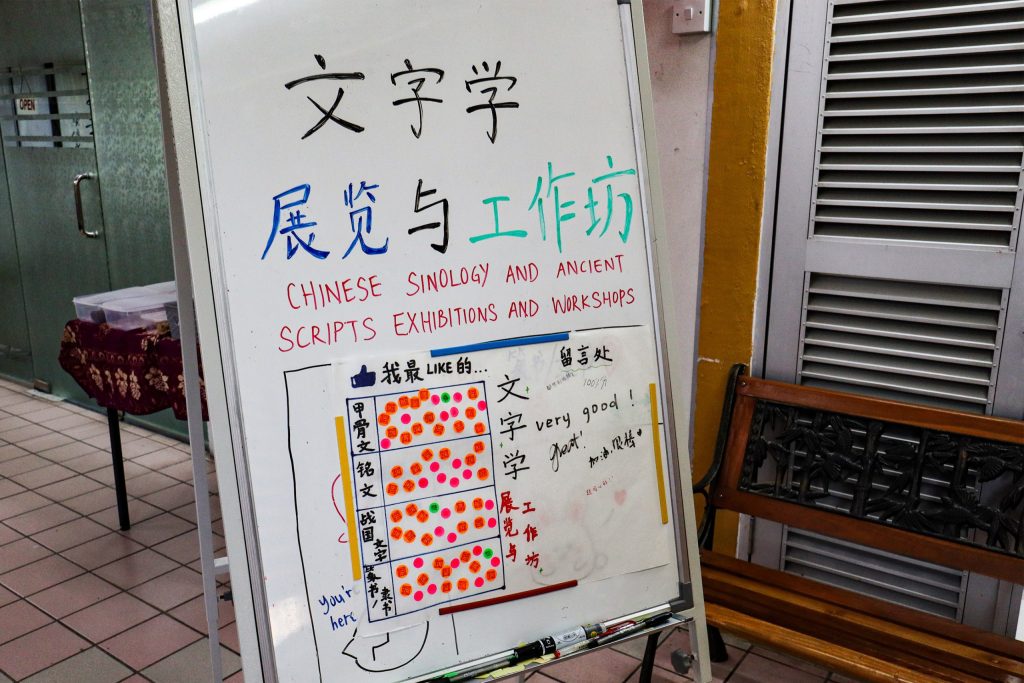 OPEN
文字学
展览与工作坊
CHINESE SINOLOGY AND ANCIENT
SCRIPTS EXHIBITIONS AND WORKSHOPS
我最LIKE的...
甲骨文
铭文
战国文字
篆书!
隶书
文字学
展览与
工作坊
留言处
100分
very good !
great!
加油
you're
here